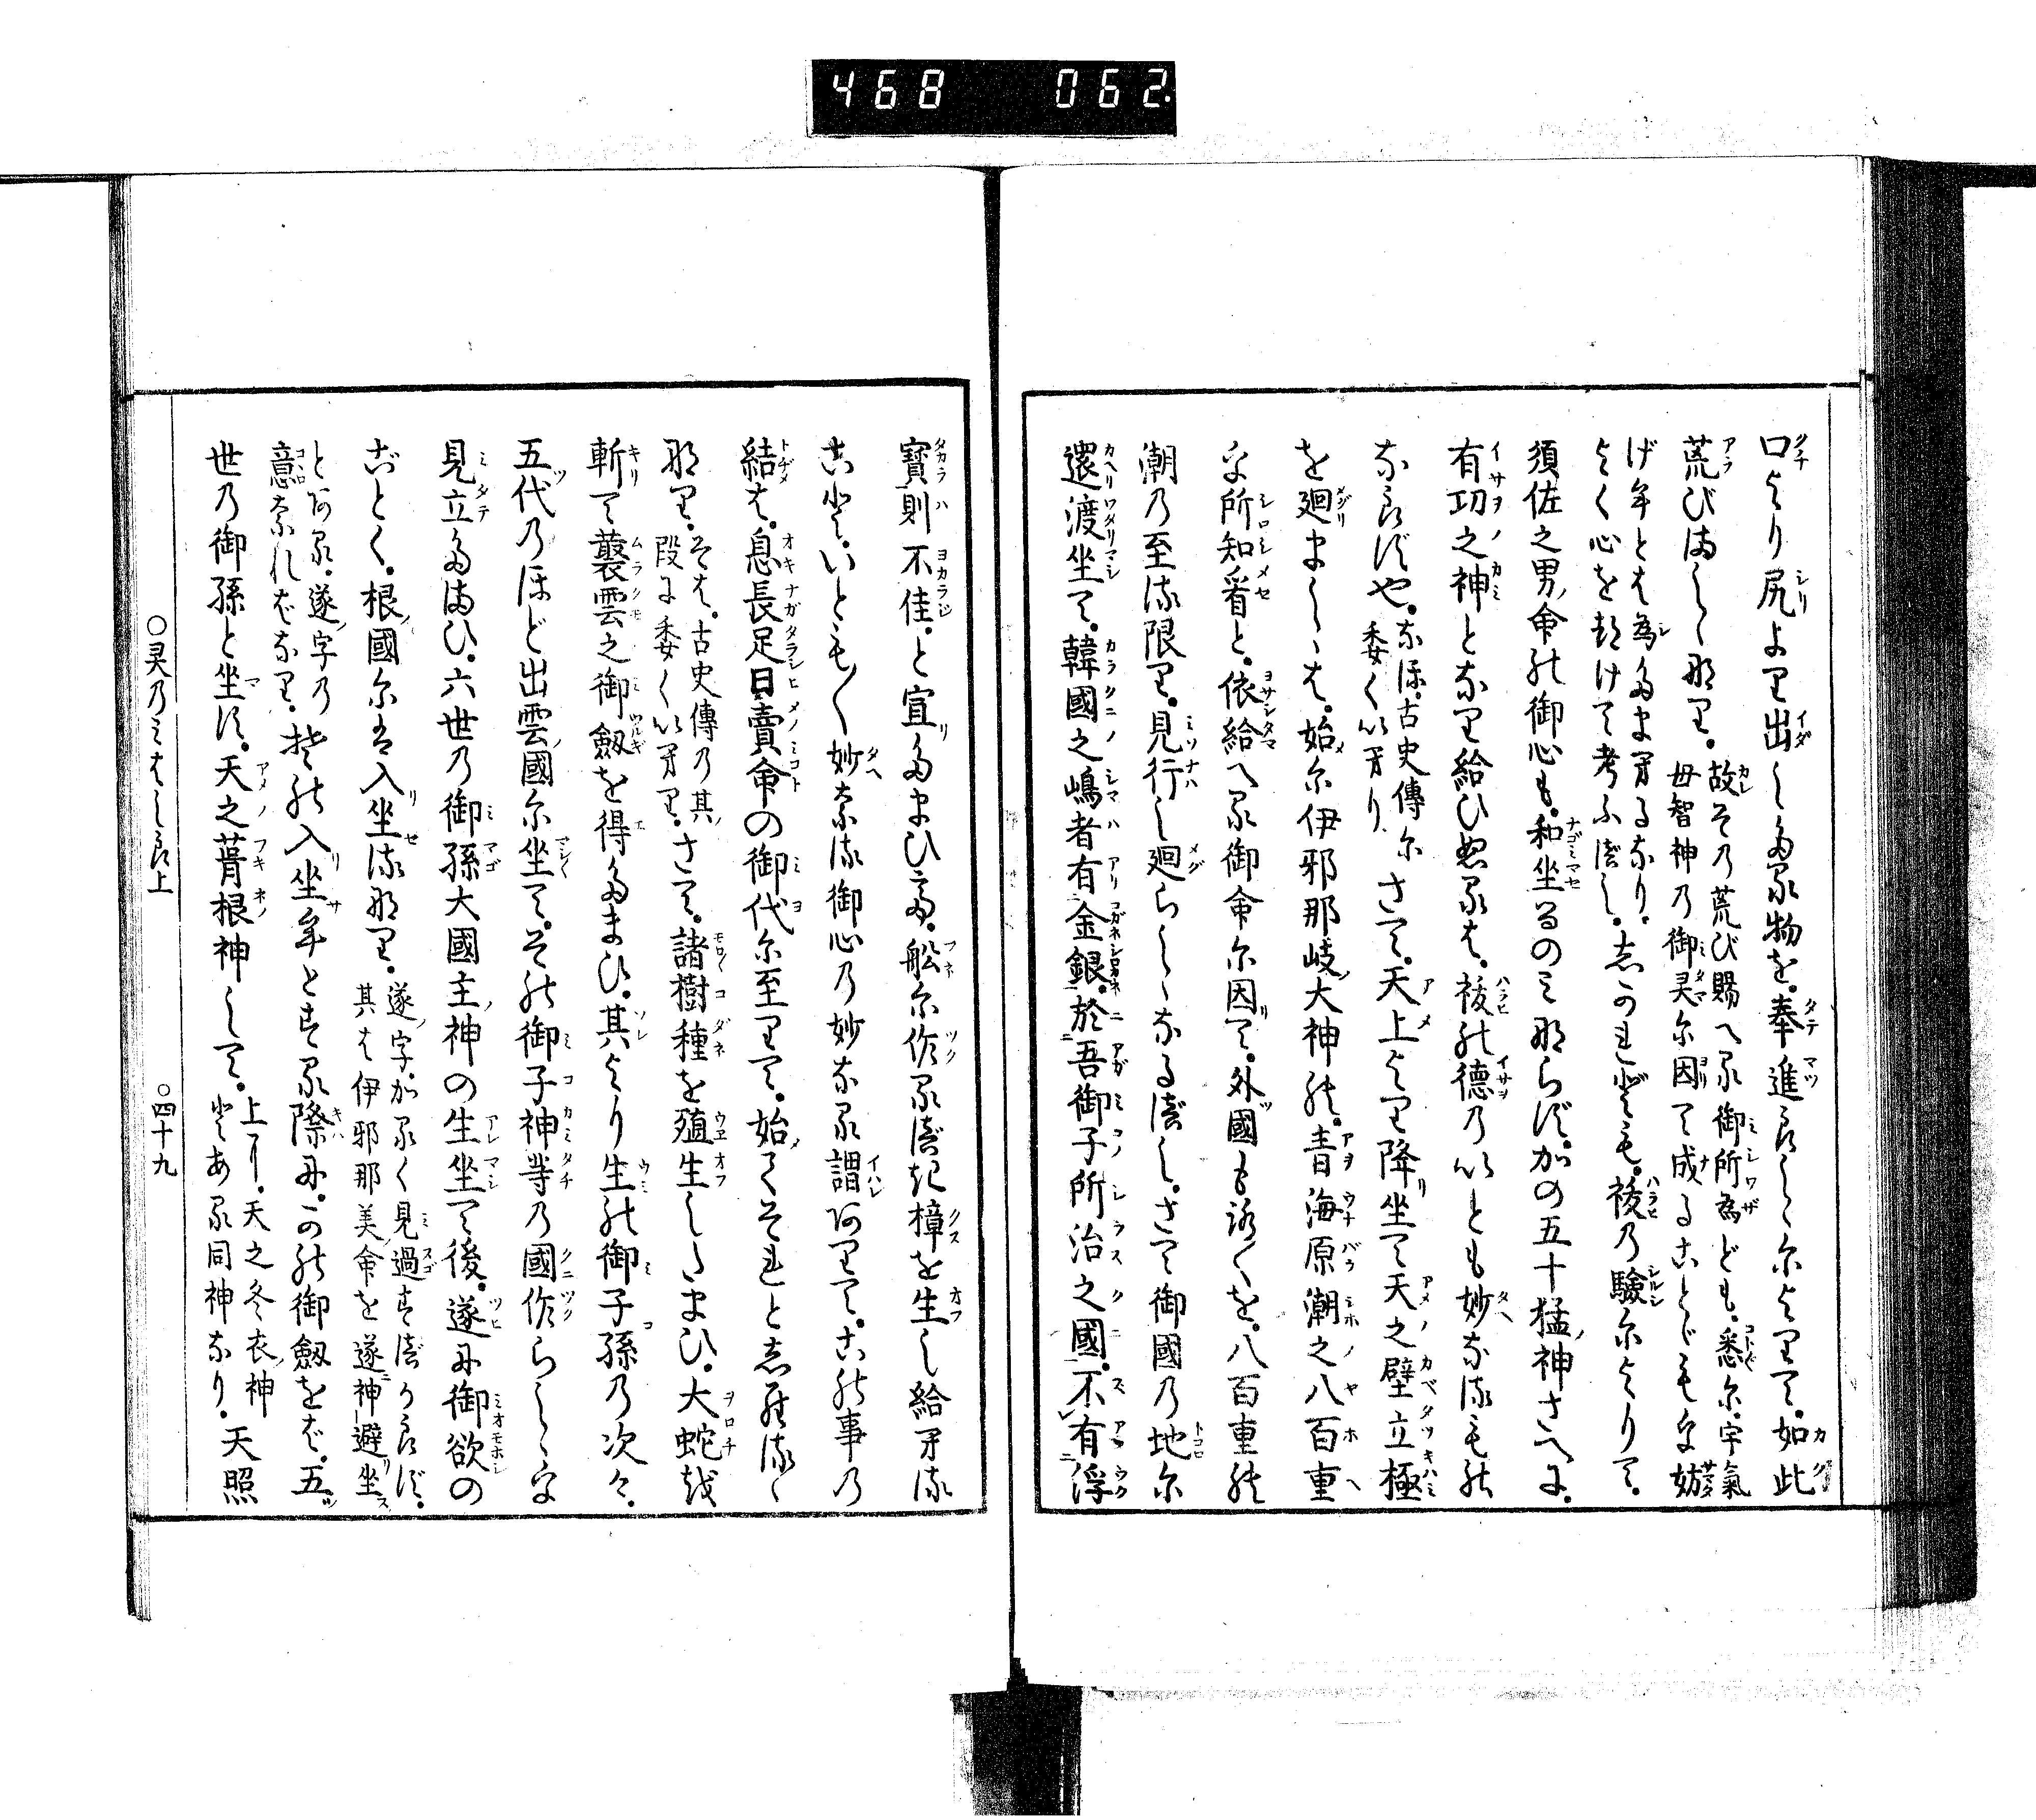 468 062.
口より尻より出したる物を。奉進らしゝによりて。如此
荒びましゝなり。故その荒び賜へる御所為ども。悉に宇氣
母智神の御霊に因て成ることゞもを妨
げ牟とは為たまへるなり。
よく心を郤けて考ふべし。しかれども。祓の驗によりて。
須佐之男命の御心も。和坐るのみならず。かの五十猛神さへに。
有功之神となり給ひぬるは。祓の德のいとも妙なるもの
ならずや。なほ。古史傳に
委くいへり
さて。天上より降坐て天之壁立極
を廻ましゝは。始に伊邪那岐大神の。青海原潮之八百重
を所知看と。依給へる御命に因て。外國も訟くを。八百重の
潮の至る限り。見行し廻らしゝなるべし。さて御國の地に
還渡坐て。韓國之嶋者有金銀。於吾御子所治之國。不有浮
寶則不佳。と宣たまひて。舩に作るべき樟を生し給へる
こと。いとも〱妙なる御心の妙なる謂ありて。この事の
結は。息長足日賣命の御代に至りて。始てそれとしるく
なり。そは。古史傳の其
段に委くいへり。
さて。諸樹種を殖生したまひ。大蛇を
斬て䕺雲之御劔を得たまひ。其より生の御子孫の次々。
五代のほど出雲國に坐て。その御子神等の國作らしゝを
見立たまひ。六世の御孫大國主神の生坐て後。遂に御欲の
ごとく。根國には入坐るなり。遂字。かるく見過すべからず。
其は伊邪那美命を遂神避坐
とある。遂字の
意なればなり。
その入坐牟とする際に。かの御劔をば。五
世の御孫と坐す。天之葺根神して。上り。天之冬衣神
とある同神なり。
天照
○霊乃みはしら上
○四十九